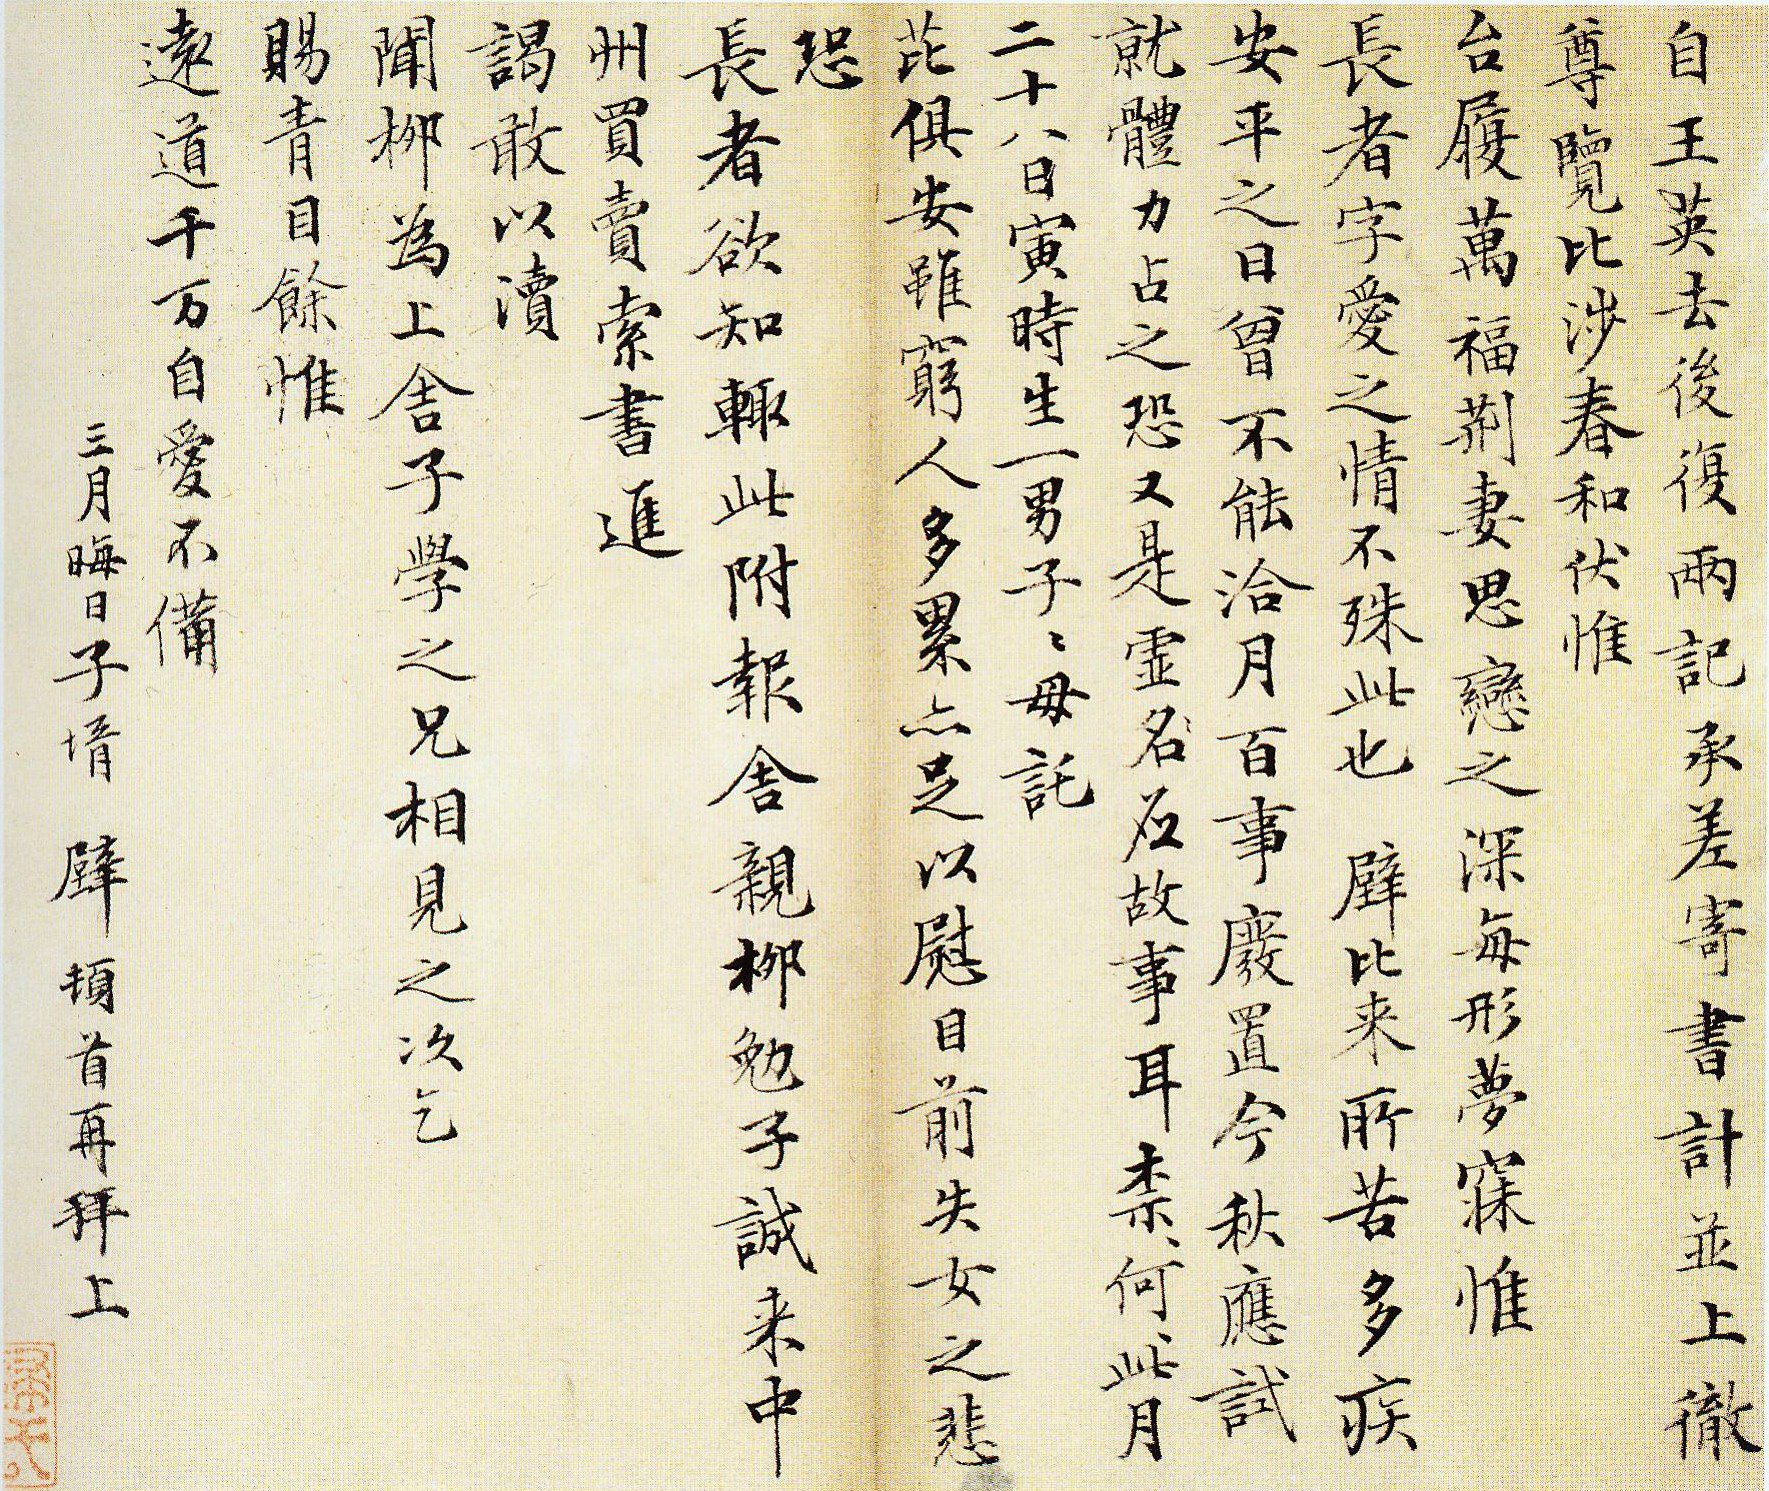 自王英去後復兩記承差寄書計並上徹
尊覽比涉春和伏惟
台履萬福荊妻思戀之深每形夢寐惟
長者字愛之情不殊此也 壁比来所苦多疾
安平之日曾不能洽月百事廢置今秋應試
就體力占之恐又是虛名應故事耳柰何柰何此月
二十八日寅時生一男子〻母託
芘俱安雖窮人多累亦足以慰目前失女之悲
恐
長者欲知輒此附報舍親柳勉子誠来中
州買賣索書進
謁敢以瀆
聞柳為上舍子學之兄相見之次乞
賜青目餘惟
遠道千万自愛不備
三月晦日子壻 壁 頓首再拜上